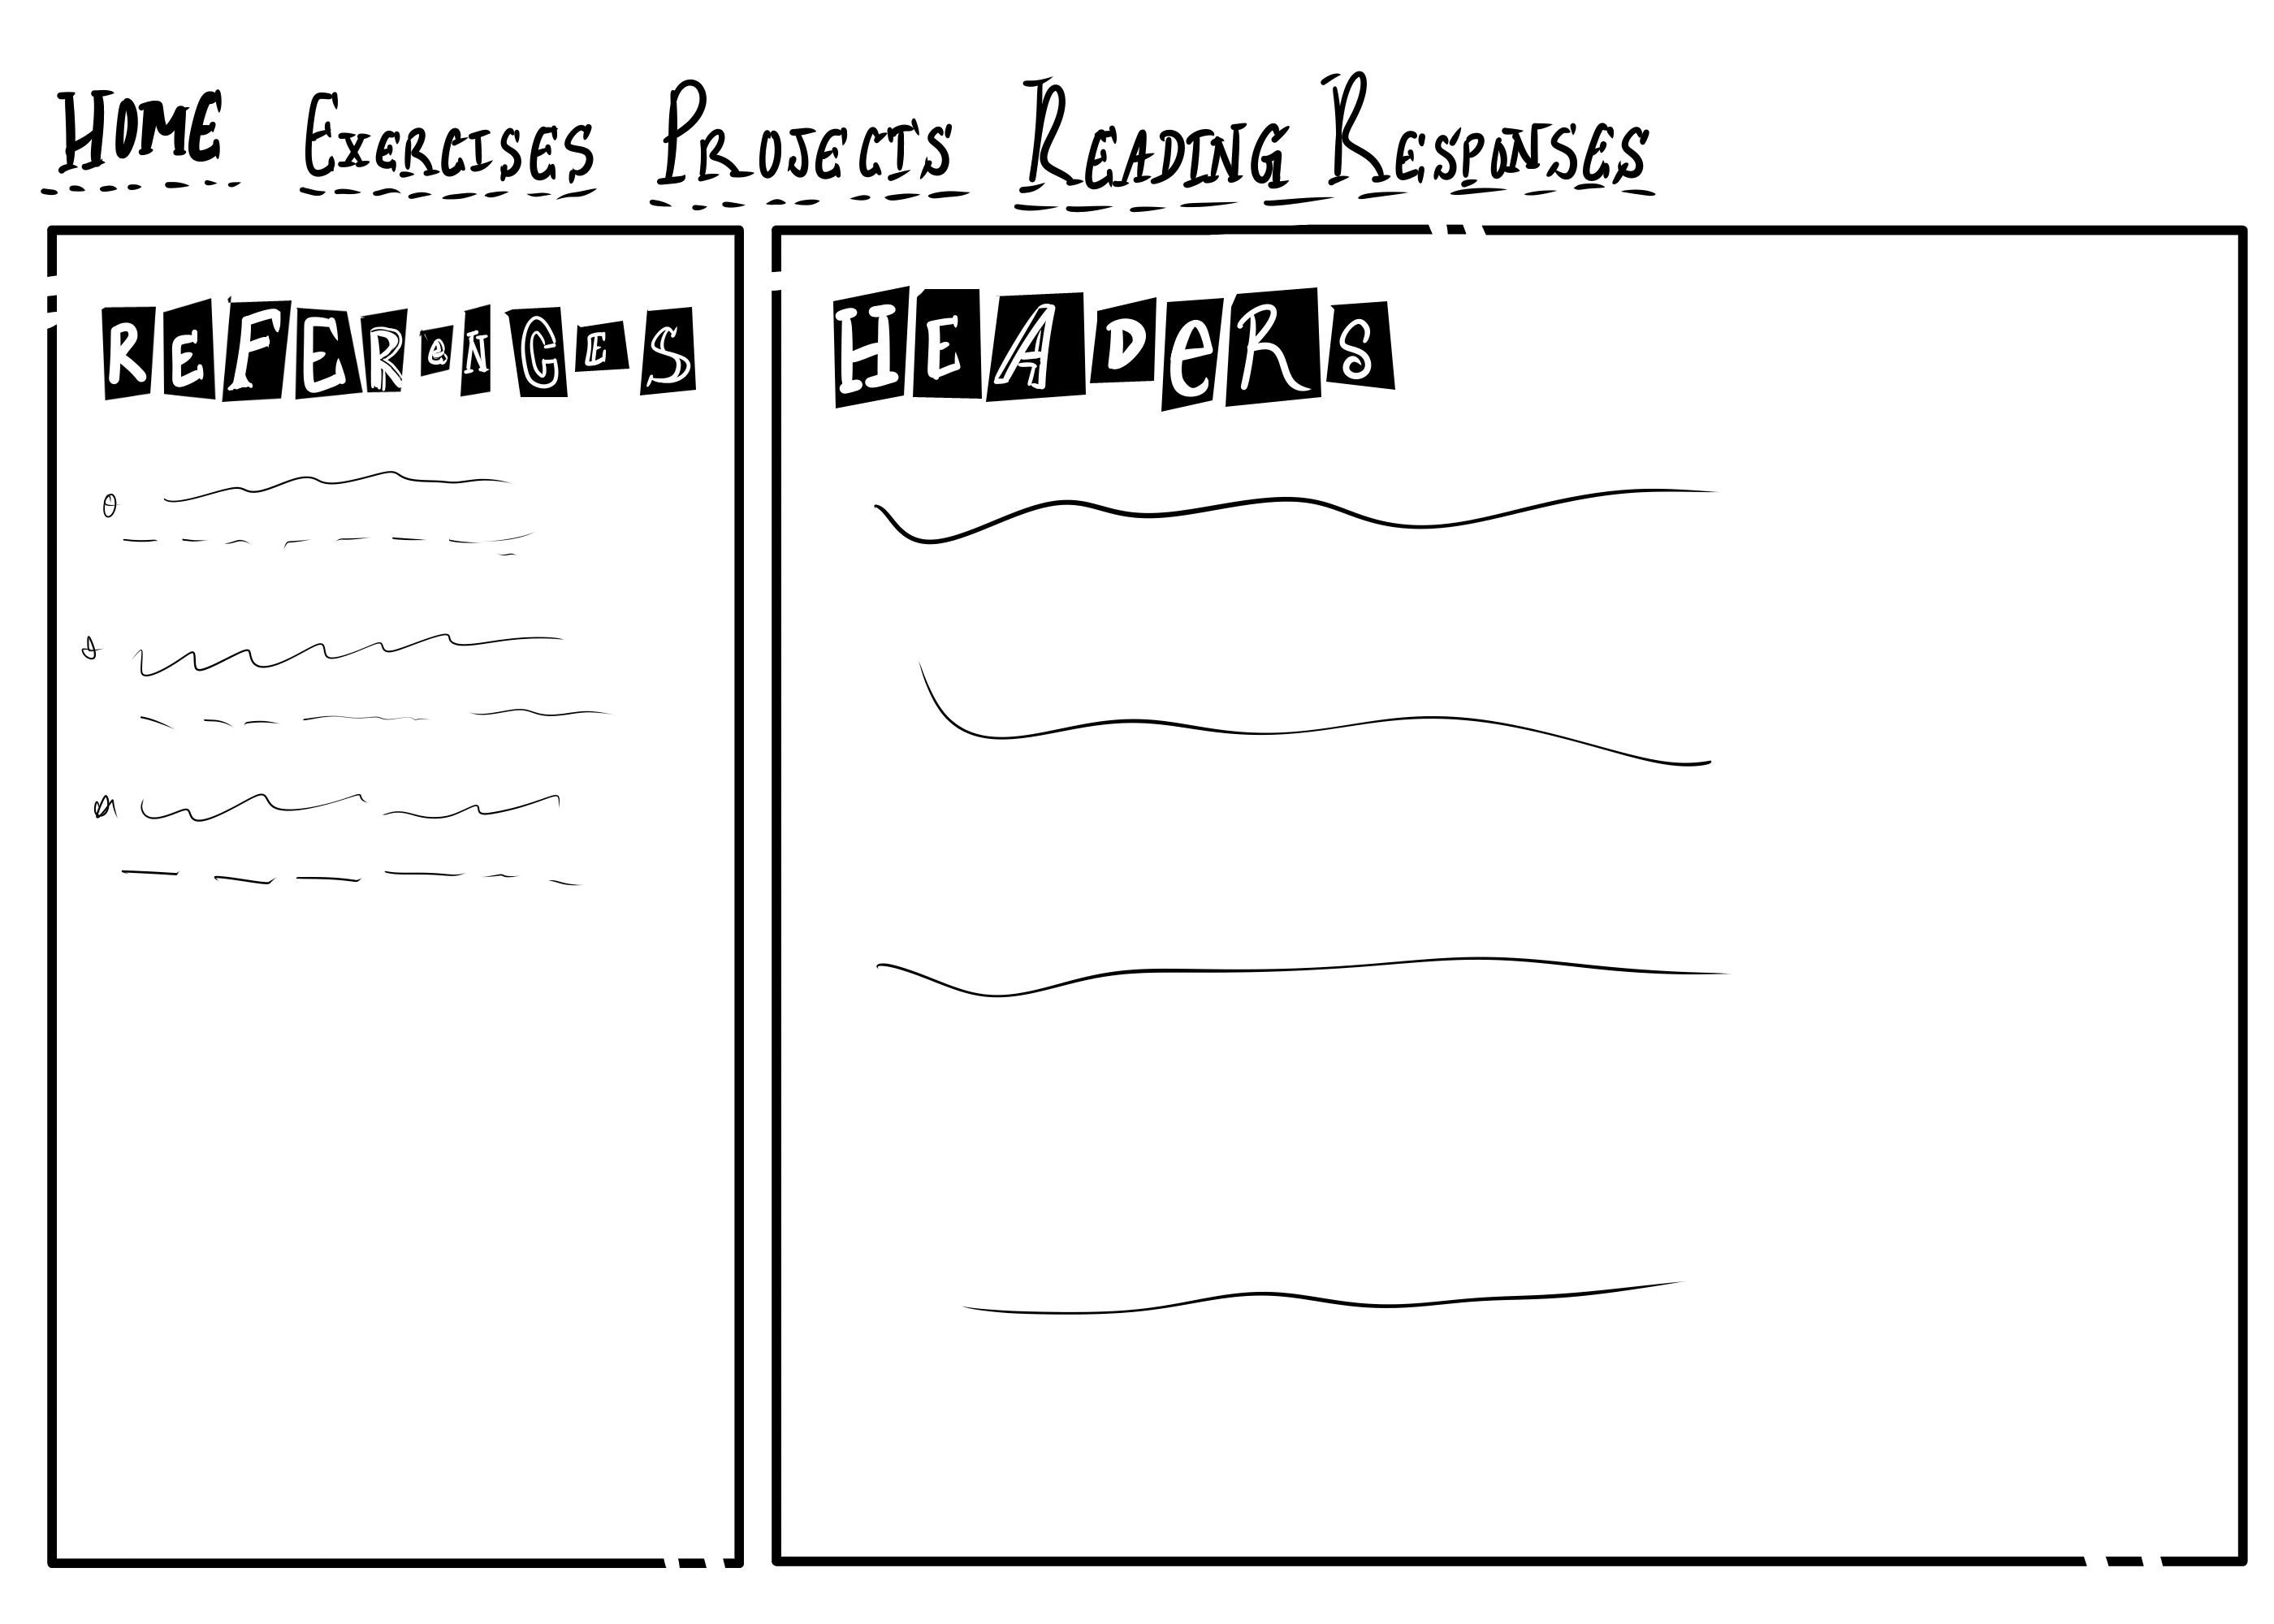 HOME EXERCISES PROJECTS READING RESPONSES
REFEReNCES HEADeRS